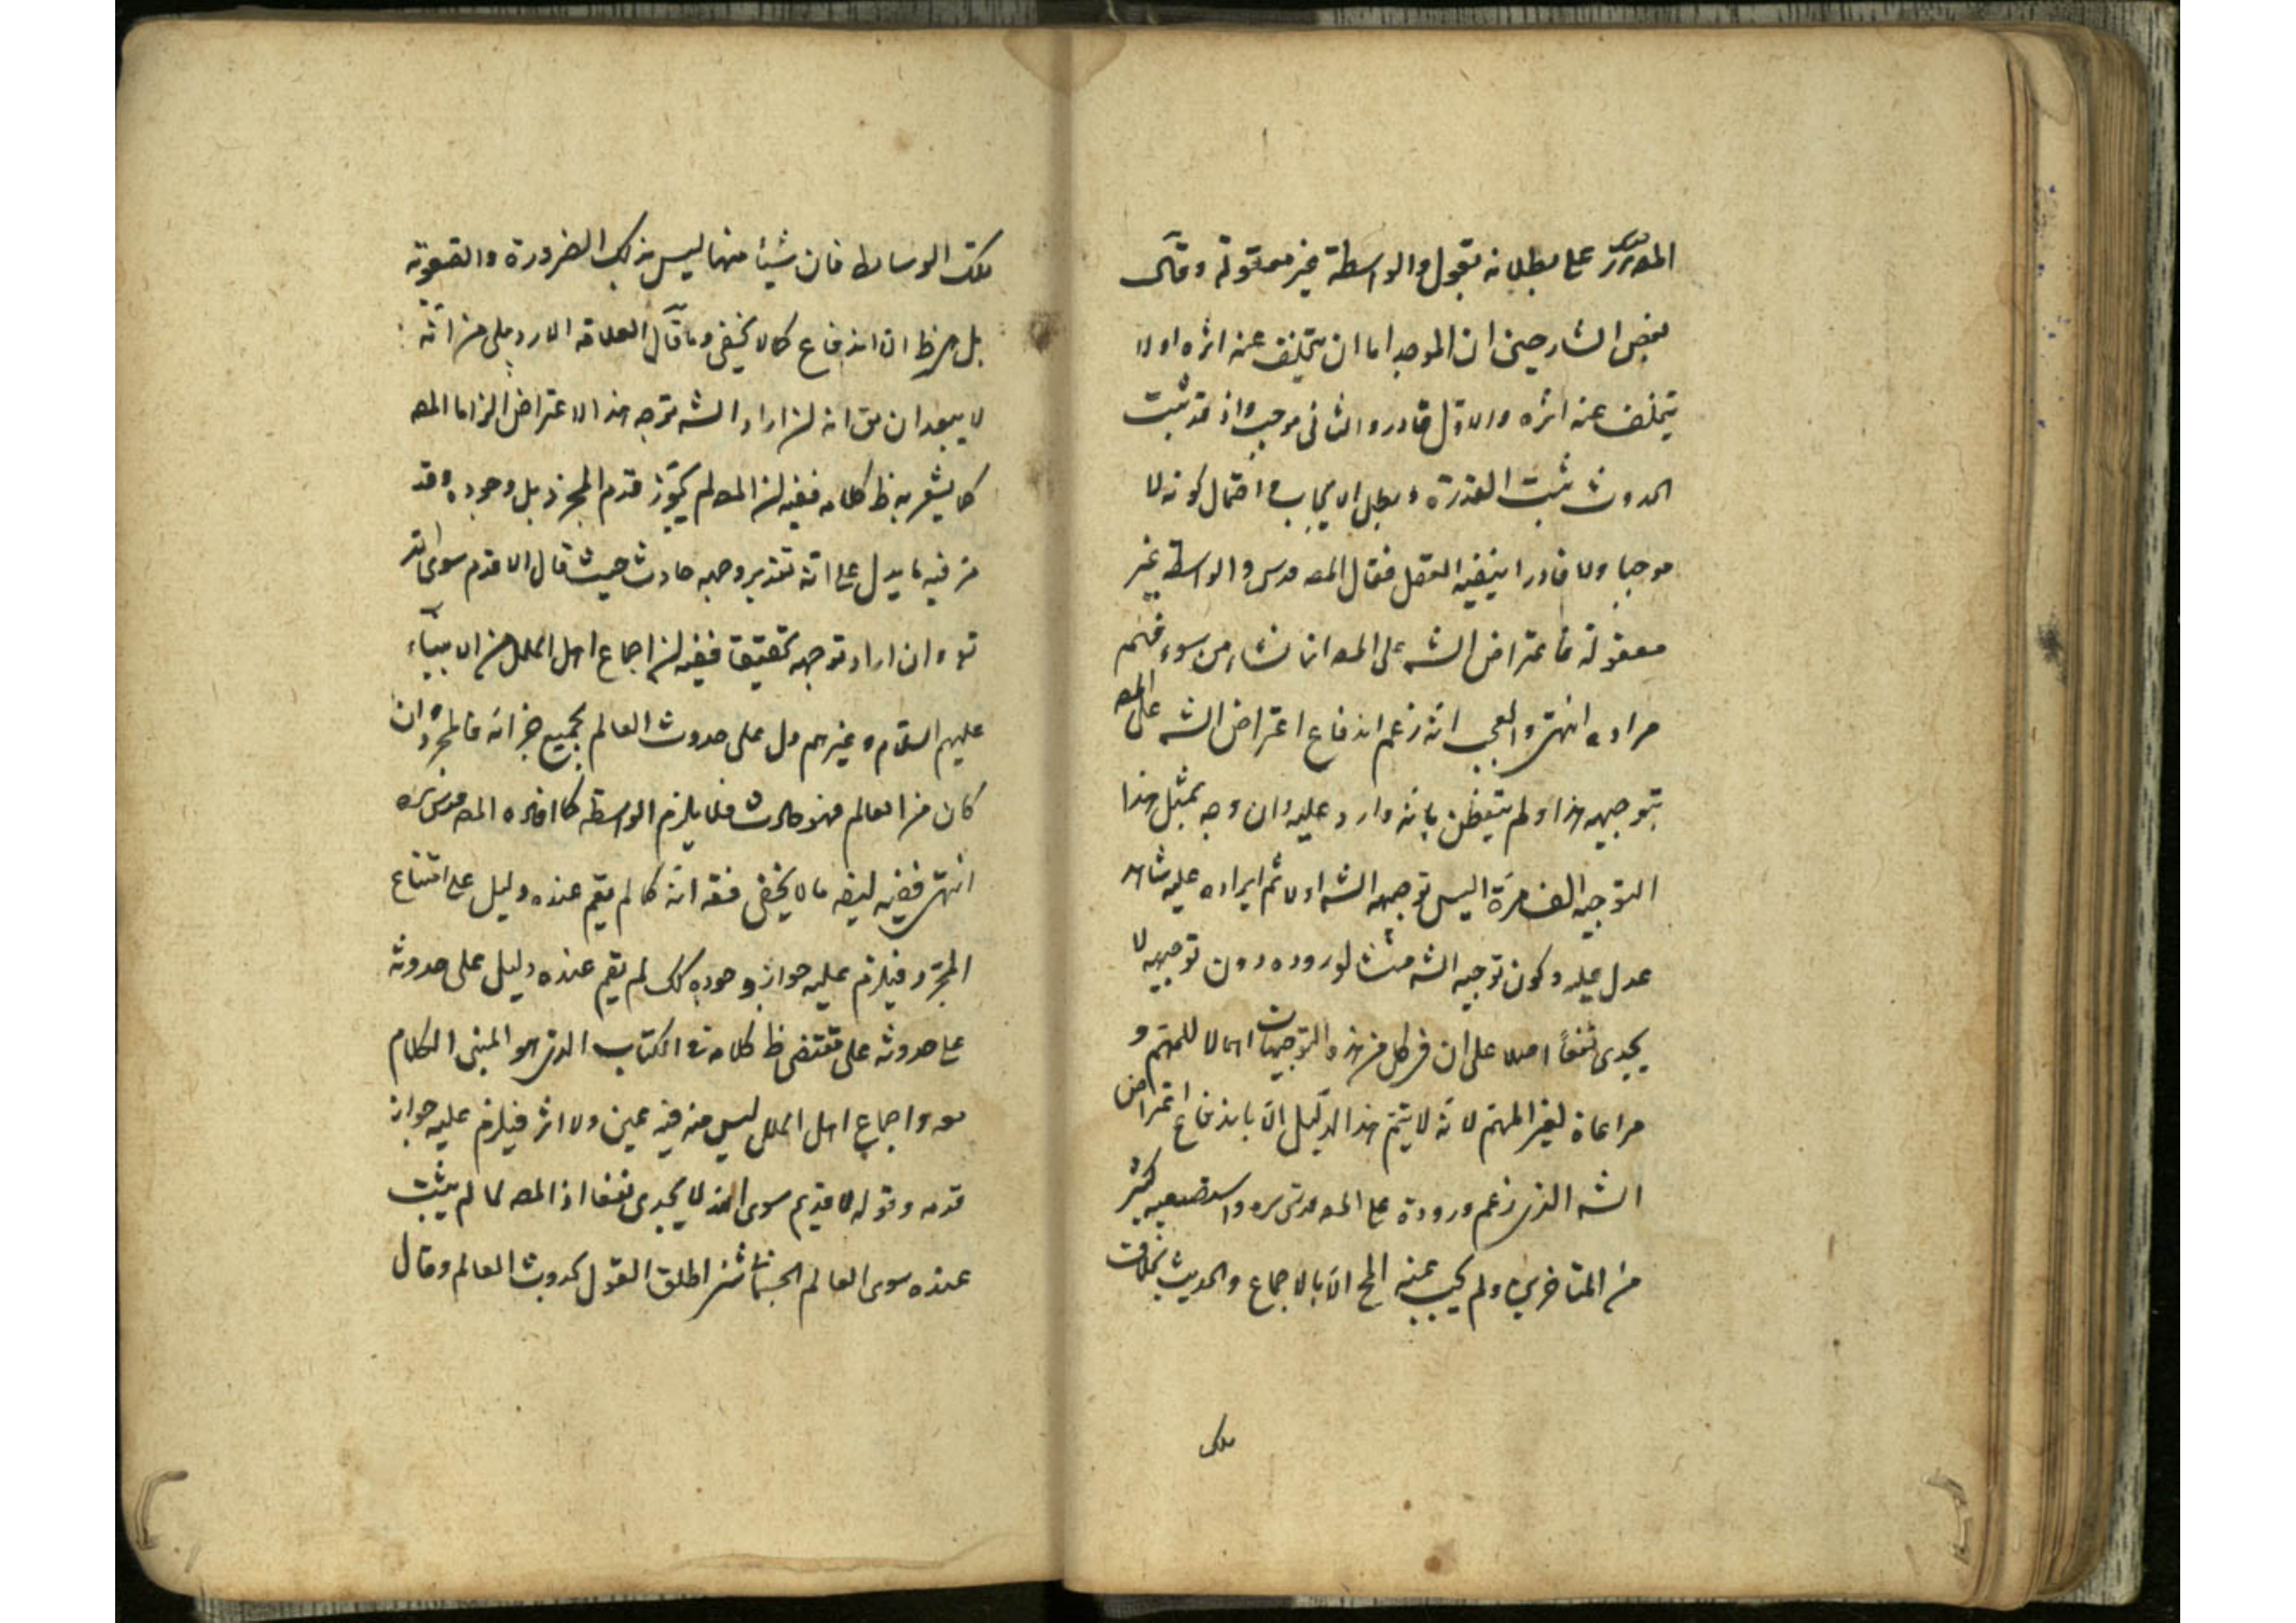 المص قدس سره على بطلانه بقوله والواسطة غير معقولة وقال
بعض الشارحين ان الموجد اما ان يتخلف عنه اثره او لا
يتخلف عنه اثره والاول قادر والثانى موجب واذ قد ثبت
الحدوث ثبت القدرة وبطل الايجاب واحتمال كونه لا
موجبا ولا قادرا ينفيه العقل فقال المص قدس والواسطة غير
معقولة فاعتراض الشه على المص انما نشاء من سوء فهم
مراده انتهى والعجب انه زعم اندفاع اعتراض الشه على المص
بتوجيهه هذا ولم يتيقظن بانه وارد عليه وان وجه بمثل هذا
التوجيه الف مرة اليس توجيه الشه اولا ثم ايراده عليه شاهد
عدل عليه وكون توجيه الشه منشا لوروده دون توجيهه لا
يجدى نفعا اصلا على ان فى كل من هذه التوجيهات اهمالا للمهتم و
مراعاة لغير المهتم لانه لا يتم هذا الدليل الا باندفاع اعتراض
الشه الذى زعم وروده على المص قدس سره واستصعبه كثير
من المتاخرين ولم يجب عنه المح الا بالاجماع والحديث بخلاف
تلك
تلك الوسائط فان شيئا منها ليس بذلك الضرورة والصعوبة
بل هو ظ الاندفاع كما لا يخفى وما قال العلامة الاردبيلى من انه
لا يبعد ان يق انه ان اراد الشه توجه هذا الاعتراض الزاما المص
كما يشعر به ظ كلامه ففيه ان المص لم يجوز قدم المجرد بل وجوده وقد
مر فيه ما يدل على انه بتقدير وجوده حادث حيث قال الا قدم سوى الله
تع وان اراد توجهه تحقيقا ففيه ان اجماع اهل الملل من الانبياء
عليهم السلام وغيرهم دل على حدوث العالم بجميع اجزائه فالمجرد ان
كان من العالم فهو حادث فلا يلزم الواسطة كما افاده المص قدس سره
انتهى ففيه ايضه ما لا يخفى فقه انه كما لم يقم عنده دليل على امتناع
المجرد فيلزم عليه جواز وجوده كك لم يقم عنده دليل على حدوثه
على حدوثه على مقتضى ظ كلامه فى الكتاب الذى هو المبنى الكلام
معه واجماع اهل الملل ليس منه فيه عين ولا اثر فيلزم عليه جواز
قدمه وقوله لا قديم سوى الله لا يجدى نفعا اذ المص لما لم يثبت
عنده سوى العالم الجسمانى اطلق القول بحدوث العالم وقال